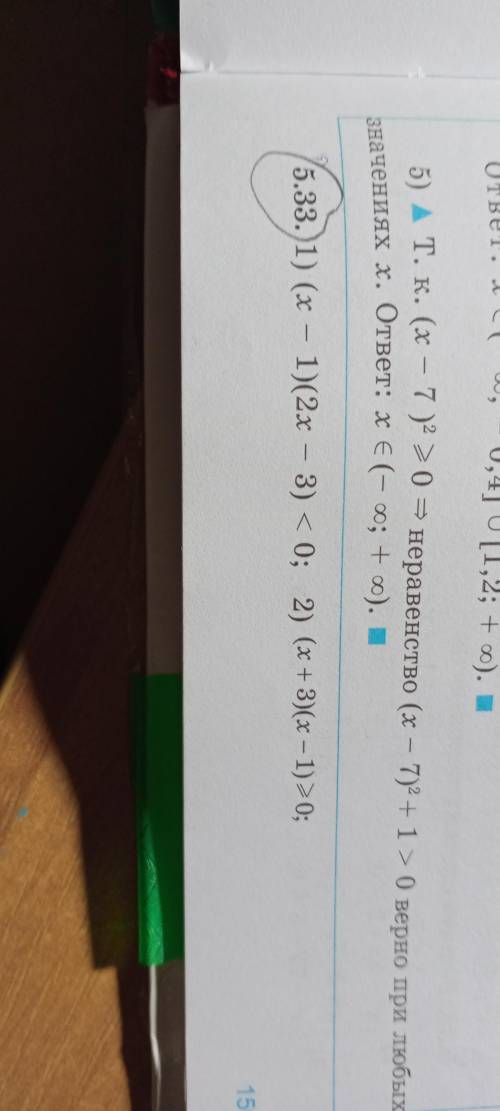 Ответ: x ∈ (− ∞; − 0,4] ∪ [1,2; + ∞).
5) Т. к. (x − 7 )² ⩾ 0 ⇒ неравенство (x − 7)² + 1 > 0 верно при любых
значениях x. Ответ: x ∈ (− ∞; + ∞).
5.33. 1) (x − 1)(2x − 3) < 0; 2) (x + 3)(x − 1) ⩾ 0;
15